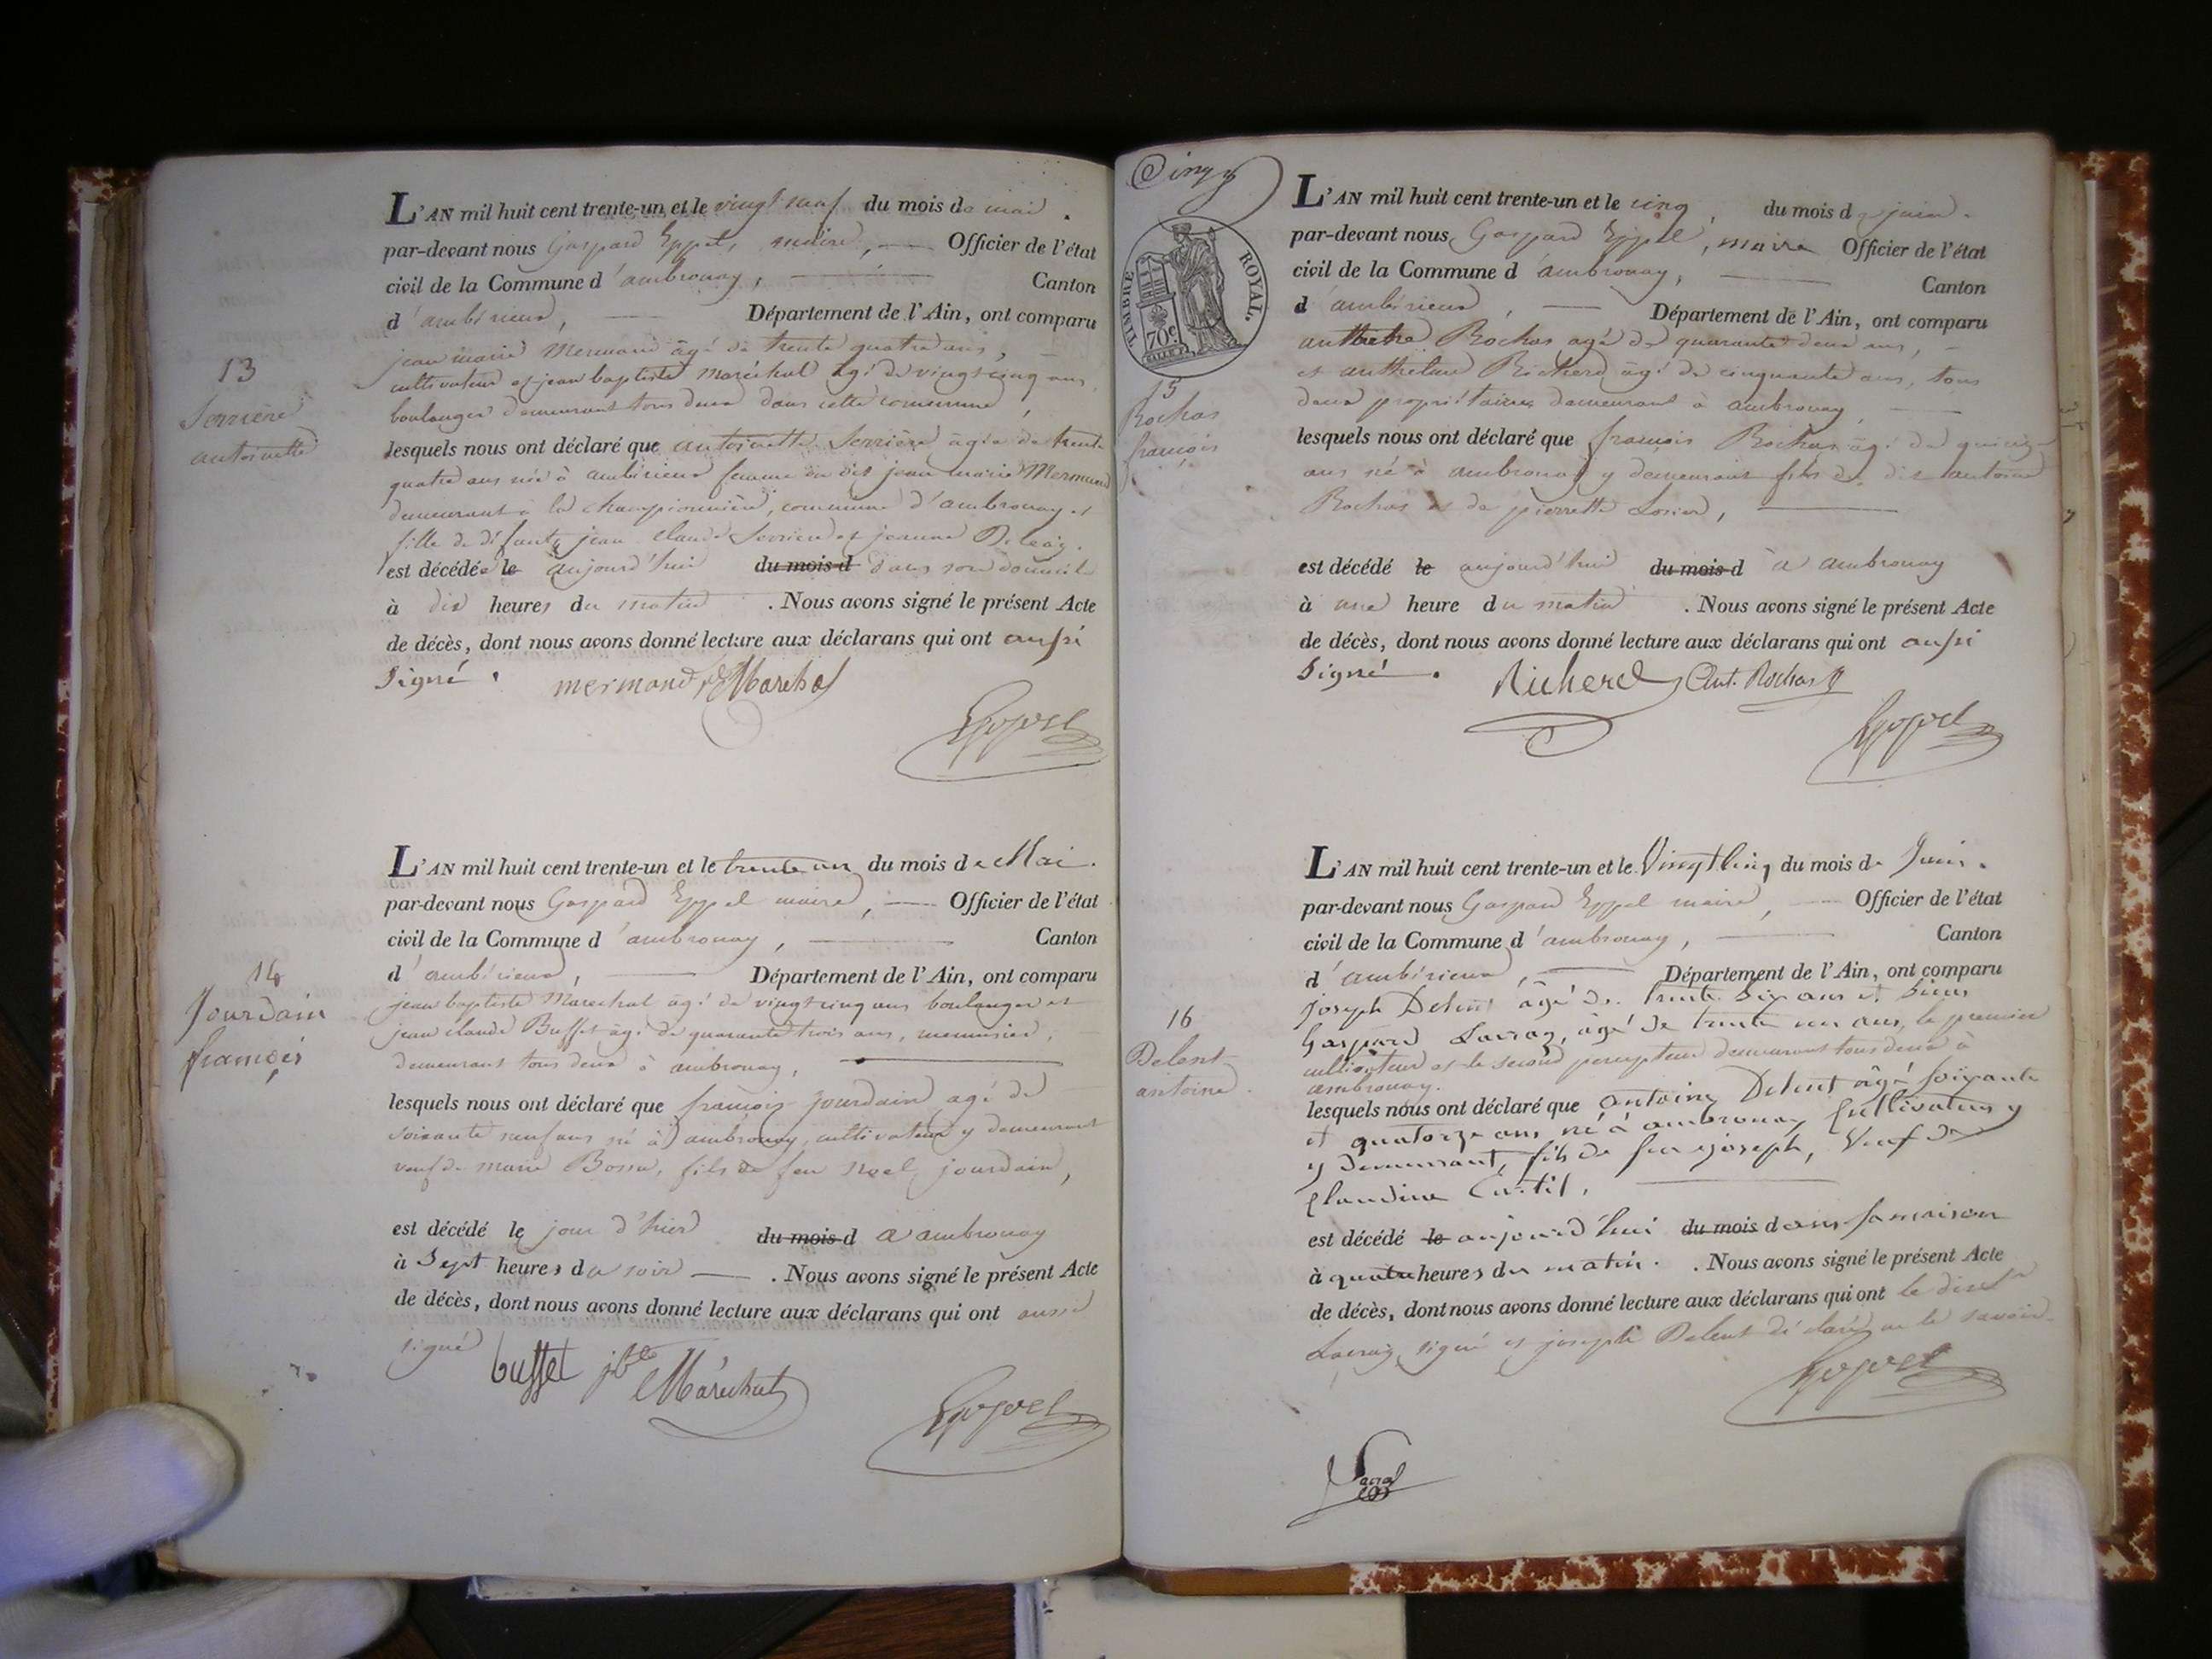 L'AN mil huit cent trente-un et le vingt neuf du mois de mai.
par-devant nous Gaspard Eppel, maire, Officier de l'état
civil de la Commune d'ambronay, Canton
d'ambérieux, Département de l'Ain, ont comparu
jean marie Mermand âgé de trente quatre ans,
cultivateur et jean baptiste Maréchal âgé de vingt cinq ans
boulanger demeurant tous deux dans cette commune,
13
Serrière
antoinette
lesquels nous ont déclaré que antoinette Serrière âgée de trente
quatre ans née à ambérieux femme du dit jean marie Mermand
demeurant à la championnière, commune d'ambronay et
fille de défunts jean claude Serrière et jeanne
est décédée le aujourd'hui du mois d dans son domicile
à dix heures du matin. Nous avons signé le présent Acte
de décès, dont nous avons donné lecture aux déclarans qui ont aussi
signé.
mermand Marechal
Eppel
L'AN mil huit cent trente-un et le trente un du mois de Mai.
par-devant nous Gaspard Eppel maire, Officier de l'état
civil de la Commune d'ambronay, Canton
d'ambérieux, Département de l'Ain, ont comparu
14
Jourdain
françois
jean baptiste Maréchal âgé de vingt cinq ans boulanger et
jean claude Buffet âgé de quarante trois ans, menuisier,
demeurant tous deux à ambronay,
lesquels nous ont déclaré que françois jourdain agé de
soixante neuf ans né à ambronay, cultivateur y demeurant
veuf de marie Bossu, fils de feu noel jourdain,
est décédé le jour d'hier du mois d à ambronay
à Sept heures du soir. Nous avons signé le présent Acte
de décès, dont nous avons donné lecture aux déclarans qui ont aussi
signé
buffet jbte Maréchal
Eppel
Cinq
TIMBRE ROYAL.
70c.
L'AN mil huit cent trente-un et le cinq, du mois de juin.
par-devant nous Gaspard Eppel, maire Officier de l'état
civil de la Commune d'ambronay, Canton
d'ambérieux, Département de l'Ain, ont comparu
Rochas agé de quarante deux ans,
et anthelme Richerd âgé de cinquante ans, tous
deux propriétaires demeurant à ambronay
15
Rochas
françois
lesquels nous ont déclaré que françois Rochas âgé de quinze
ans né à ambronay y demeurant fils du dit antoine
Rochas et de pierrette
est décédé le aujourd'hui du mois d à ambronay
à une heure du matin. Nous avons signé le présent Acte
de décès, dont nous avons donné lecture aux déclarans qui ont aussi
signé.
Richerd Ant. Rochas
Eppel
L'AN mil huit cent trente-un et le Vingt Cinq du mois de Juin.
par-devant nous Gaspard Eppel maire, Officier de l'état
civil de la Commune d'ambronay, Canton
d'ambérieux, Département de l'Ain, ont comparu
joseph Delent âgé de trente six ans et Sieur
Gaspard Lavray, âgé de trente un ans, le premier
cultivateur et le second percepteur demeurant tous deux à
ambronay.
16
Delent
antoine.
lesquels nous ont déclaré que antoine Delent âgé soixante
et quatorze ans, né à ambronay Cultivateur y
y demeurant, fils de feu joseph, Veuf de
Claudine
est décédé le aujourd'hui du mois dans sa maison
à quatre heures du matin. Nous avons signé le présent Acte
de décès, dont nous avons donné lecture aux déclarans qui ont le dit Sr
Lavray signé et joseph Delent déclaré ne le savoir.
Eppel